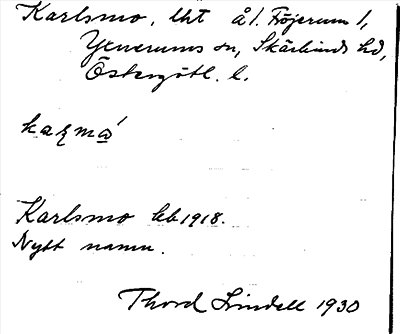 Karlsmo, lht å l. Fröjerum 1,
Yxnerums sn, Skärkinds hd,
Östergötl. l.
Karlsmo hb 1918.
Nytt namn.
Thord Lindell 1930